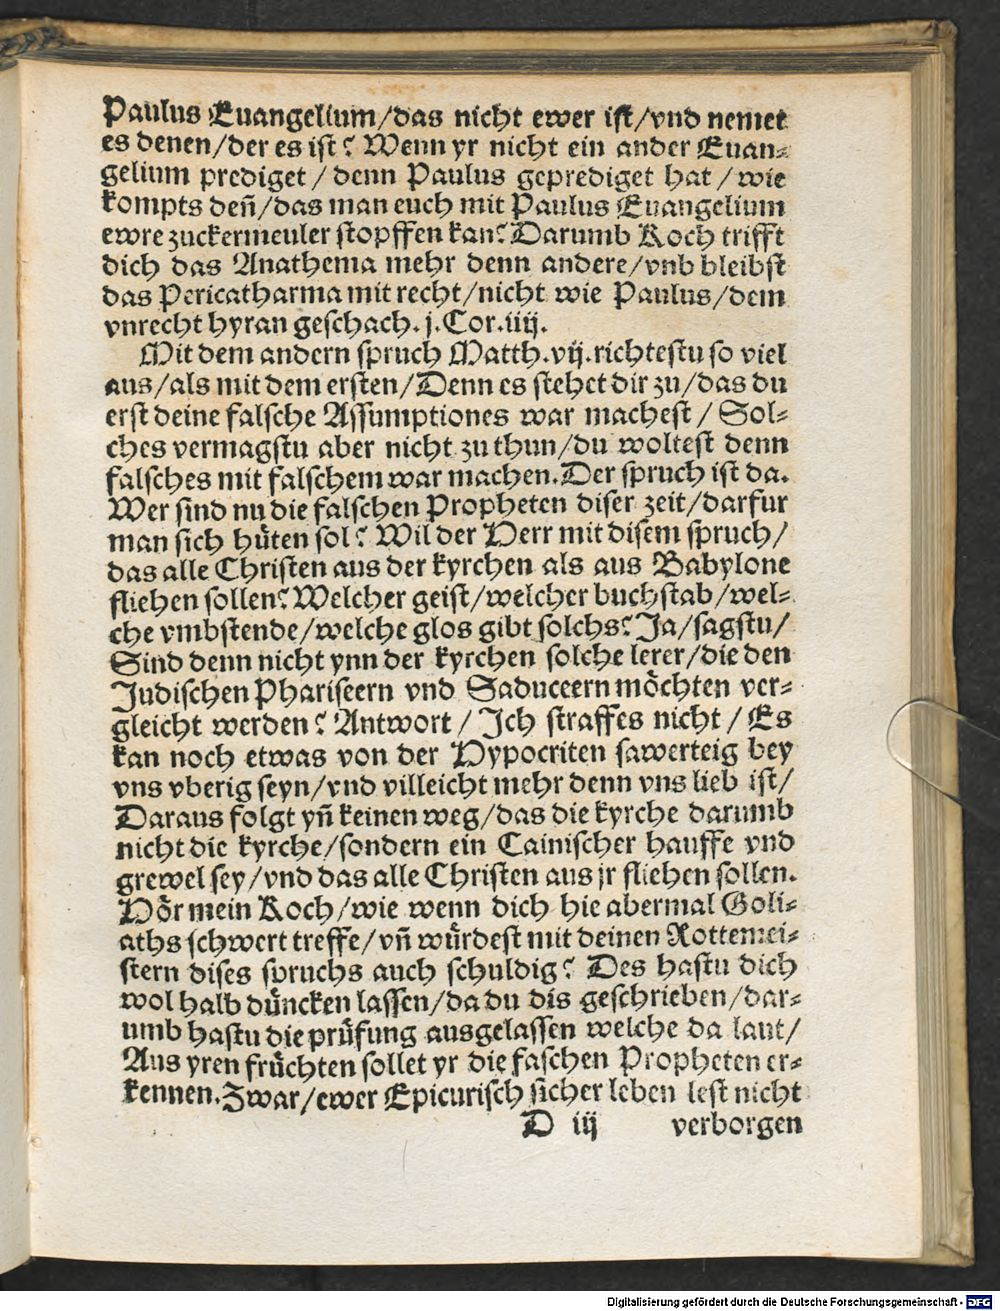 Paulus Euangelium/das nicht ewer ist/vnd nemet
es denen/der es ist? Wenn yr nicht ein ander Euan-
gelium prediget/denn Paulus geprediget hat/wie
kompts deñ/das man euch mit Paulus Euangelium
ewre zuckermeuler stopffen kan? Darumb Koch trifft
dich das Anathema mehr denn andere/vnb bleibst
das Pericatharma mit recht/nicht wie Paulus/dem
vnrecht hyran geschach. j. Cor. iiij.
Mit dem andern spruch Matth. vij. richtestu so viel
aus/als mit dem ersten/Denn es stehet dir zu/das du
erst deine falsche Assumptiones war machest/Sol-
ches vermagstu aber nicht zu thun/du woltest denn
falsches mit falschem war machen. Der spruch ist da.
Wer sind nu die falschen Propheten diser zeit/darfur
man sich hüten sol? Wil der Herr mit disem spruch/
das alle Christen aus der kyrchen als aus Babylone
fliehen sollen? Welcher geist/welcher buchstab/wel-
che vmbstende/welche glos gibt solchs? Ja/sagstu/
Sind denn nicht ynn der kyrchen solche lerer/die den
Judischen Phariseern vnd Saduceern möchten ver-
gleicht werden? Antwort/Ich straffes nicht/Es
kan noch etwas von der Hypocriten sawerteig bey
vns vberig seyn/vnd villeicht mehr denn vns lieb ist/
Daraus folgt yñ keinen weg/das die kyrche darumb
nicht die kyrche/sondern ein Cainischer hauffe vnd
grewel sey/vnd das alle Christen aus jr fliehen sollen.
Hör mein Koch/wie wenn dich hie abermal Goli-
aths schwert treffe/vñ würdest mit deinen Rottemei-
stern dises spruchs auch schuldig? Des hastu dich
wol halb düncken lassen/da du dis geschrieben/dar-
umb hastu die prüfung ausgelassen welche da laut/
Aus yren früchten sollet yr die faschen Propheten er-
kennen. Zwar/ewer Epicurisch sicher leben lest nicht
D iij verborgen
Digitalisierung gefördert durch die Deutsche Forschungsgemeinschaft - DFG